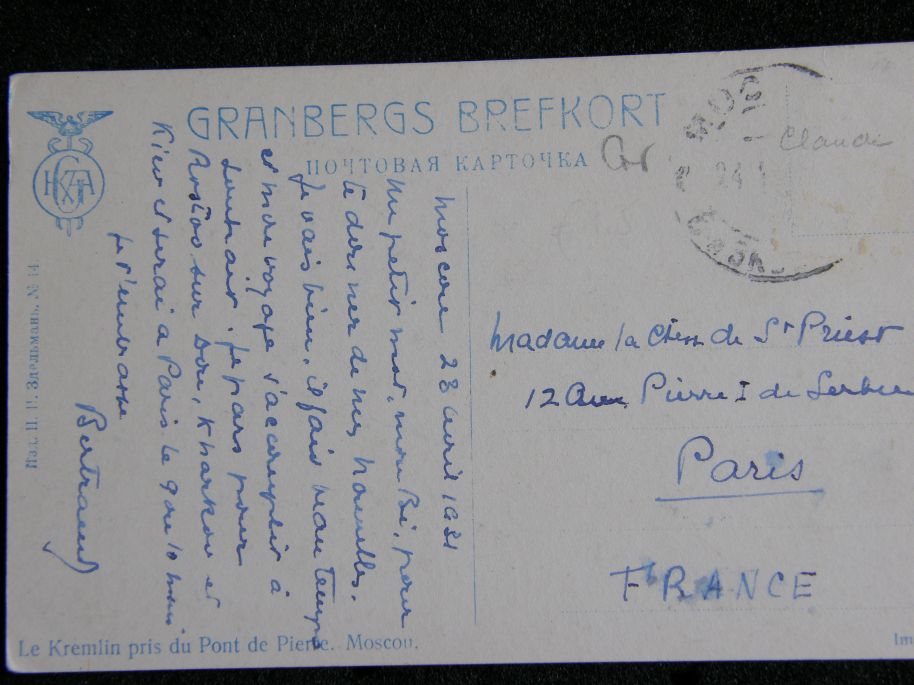 GRANBERGS BREFKORT
ПОЧТОВАЯ КАРТОЧКА
Claude
24
Moscou 28 avril 1931
Un petit mot, mon Bé, pour
te donner de mes nouvelles.
Je vais bien, il fait beau temps
et mon voyage s'accomplit à
souhait. Je pars pour
Rostov sur Don, Kharkov et
Kiev et serai à Paris le 9 ou 10 mai.
Je t'embrasse
Bertrand
Madame la Ctesse de St Priest
12 Ave Pierre I de Serbie
Paris
FRANCE
Le Kremlin pris du Pont de Pierre. Moscou.
Im